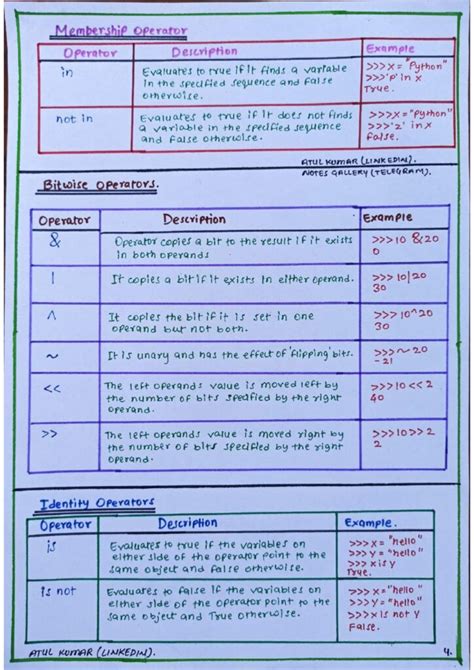 Membership Operator
Operator Description Example
in Evaluates to true if it finds a variable >>>x = "Python"
in the specified sequence and false >>>'P' in x
otherwise. True.
not in Evaluates to true if it does not finds >>>x = "Python"
a variable in the specified sequence >>>'z' in x
and false otherwise. False.
ATUL KUMAR (LINKEDIN).
NOTES GALLERY (TELEGRAM).
Bitwise Operators.
Operator Description Example
& Operator copies a bit to the result if it exists >>>10 &20
in both operands 0
| It copies a bit if it exists in either operand. >>>10|20
30
^ It copies the bit if it is set in one >>>10^20
operand but not both. 30
~ It is unary and has the effect of 'flipping' bits. >>>~20
-21
<< The left operands value is moved left by >>>10<<2
the number of bits specified by the right 40
operand.
>> The left operands value is moved right by >>>10>>2
the number of bits specified by the right 2
operand.
Identity Operators
Operator Description Example.
is Evaluates to true if the variables on >>>x = "hello"
either side of the operator point to the >>>y = "hello"
same object and false otherwise. >>>x is y
True.
is not Evaluates to false if the variables on >>>x = "hello"
either side of the operator point to the >>>y = "hello"
same object and True otherwise. >>>x is not y
False.
ATUL KUMAR (LINKEDIN). 4.